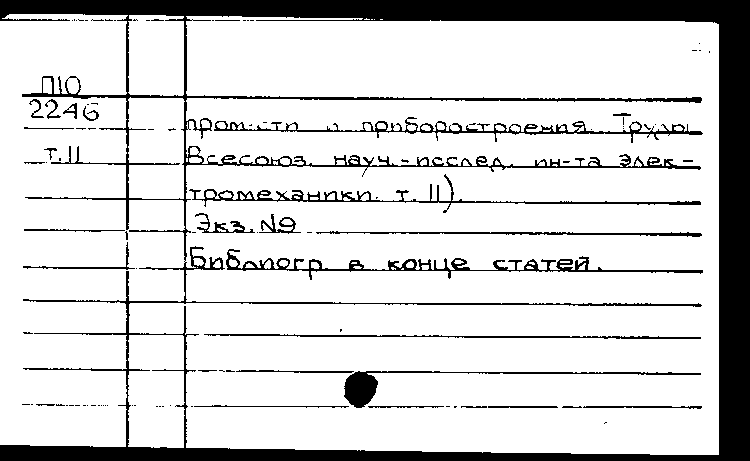 П10
2246
т.11
пром-сти и приборостроения. Труды
Всесоюз. науч.-исслед. ин-та элек-
тромеханики. т. 11).
Экз. №9
Библиогр. в конце статей.